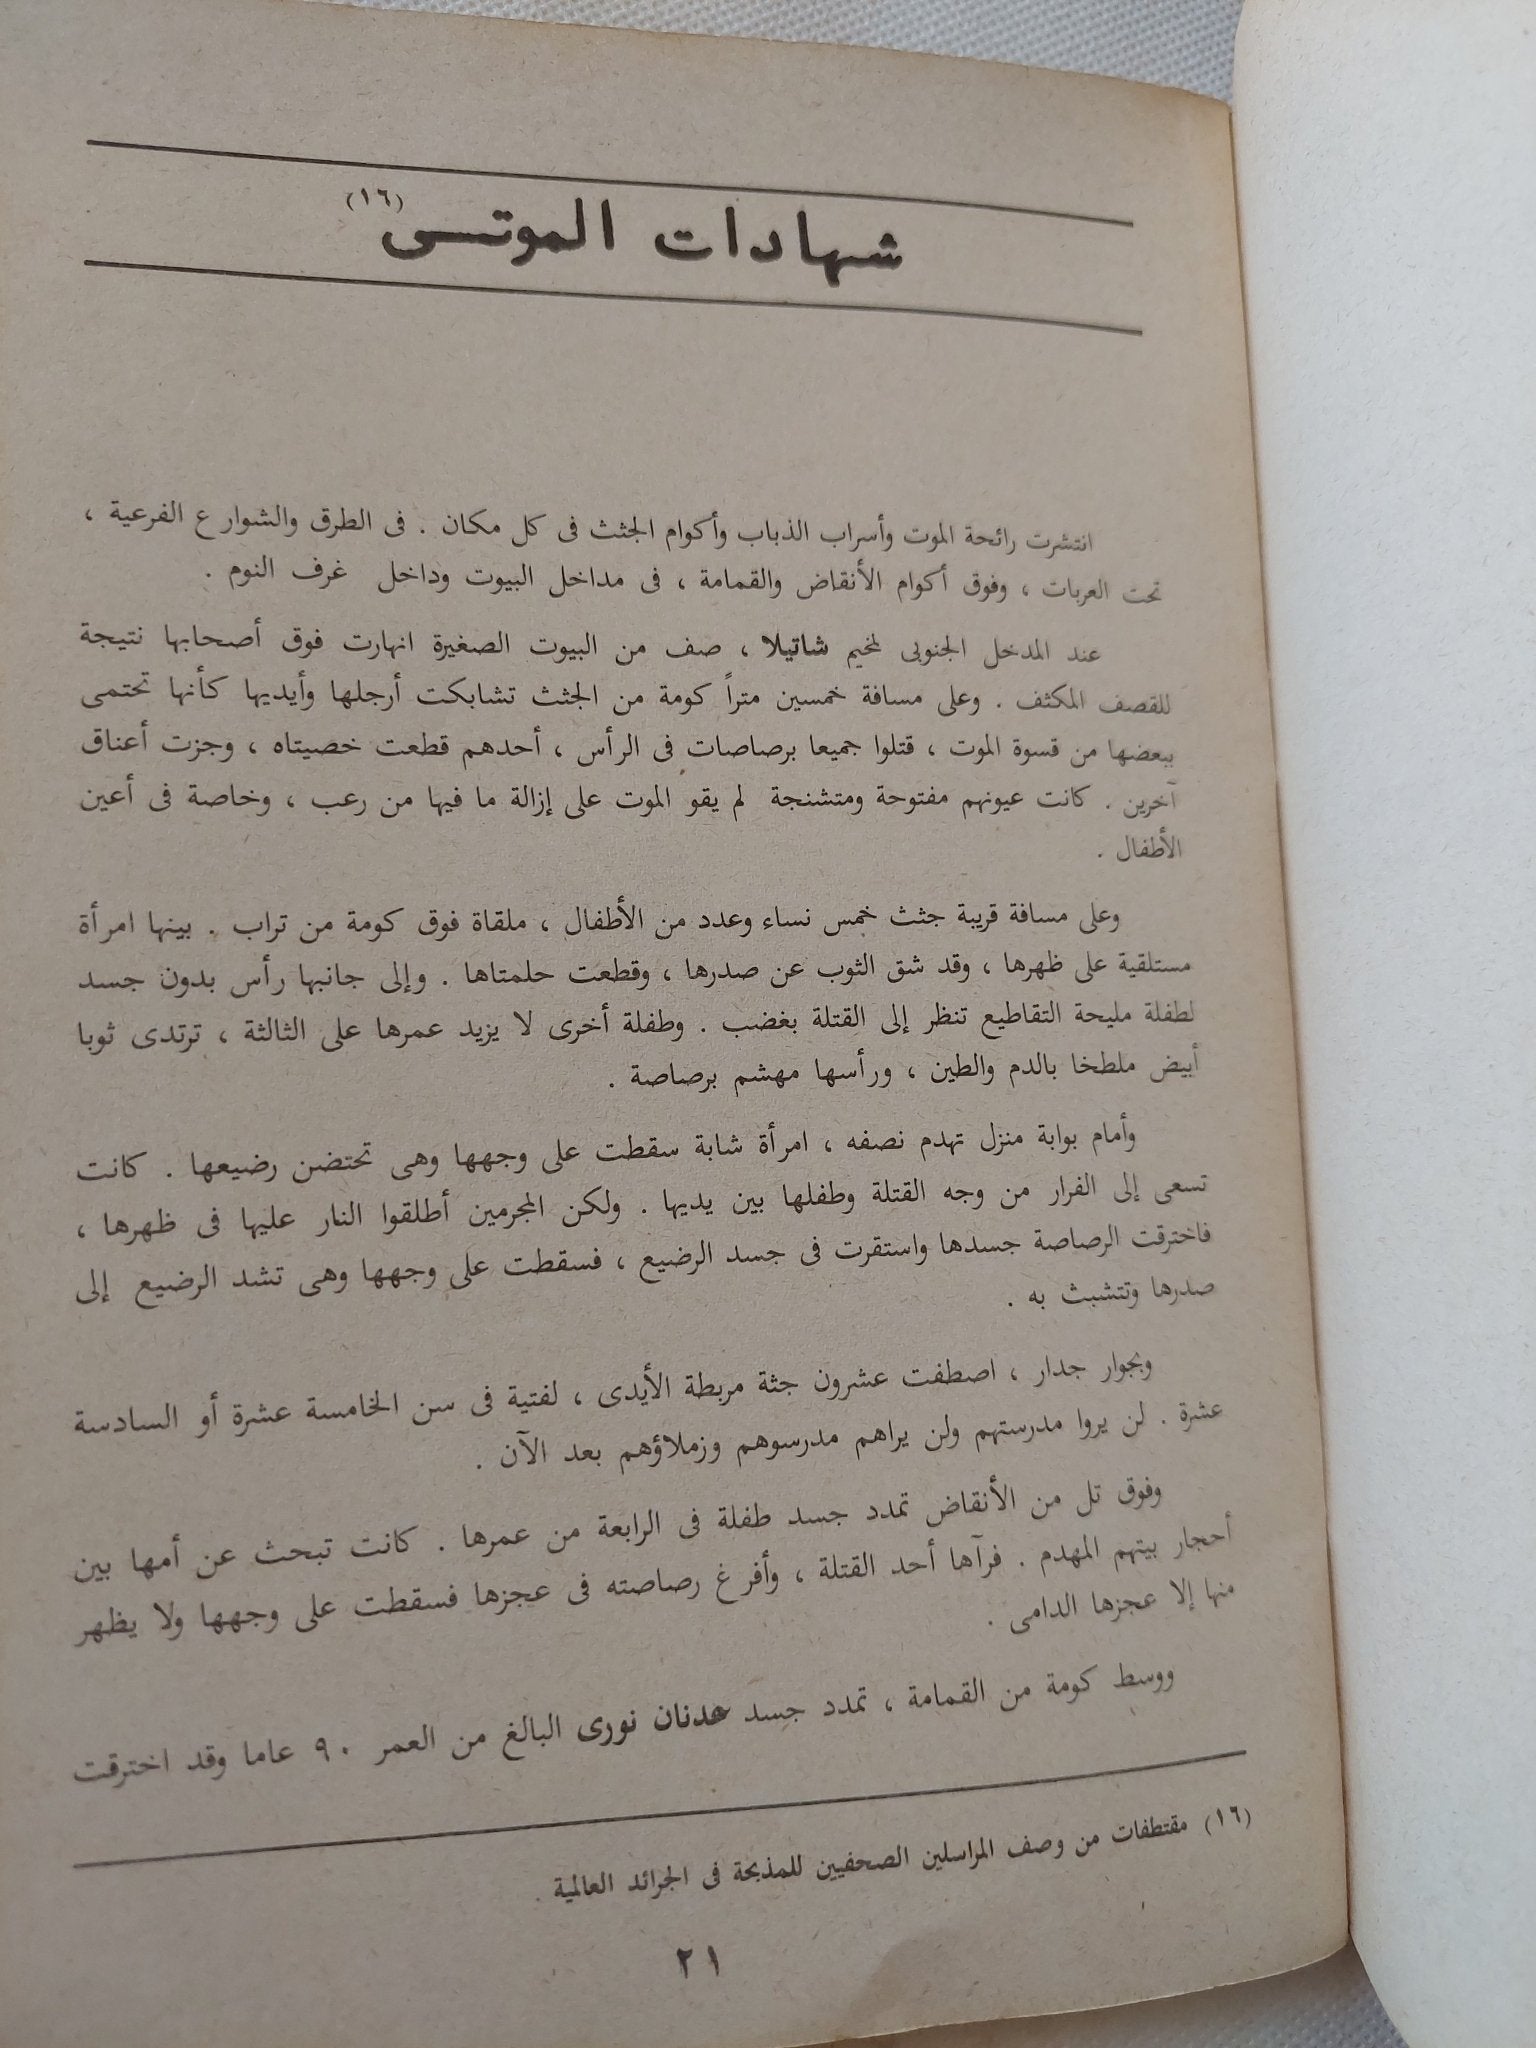 شهادات الموتى (١٦)
انتشرت رائحة الموت وأسراب الذباب وأكوام الجثث فى كل مكان . فى الطرق والشوارع الفرعية ،
تحت العربات ، وفوق أكوام الأنقاض والقمامة ، فى مداخل البيوت وداخل غرف النوم .
عند المدخل الجنوبى لمخيم شاتيلا ، صف من البيوت الصغيرة انهارت فوق أصحابها نتيجة
للقصف المكثف . وعلى مسافة خمسين متراً كومة من الجثث تشابكت أرجلها وأيديها كأنها تحتمى
ببعضها من قسوة الموت ، قتلوا جميعا برصاصات فى الرأس ، أحدهم قطعت خصيتاه ، وجزت أعناق
آخرين . كانت عيونهم مفتوحة ومتشنجة لم يقو الموت على إزالة ما فيها من رعب ، وخاصة فى أعين
الأطفال .
وعلى مسافة قريبة جثث خمس نساء وعدد من الأطفال ، ملقاة فوق كومة من تراب . بينها امرأة
مستلقية على ظهرها ، وقد شق الثوب عن صدرها ، وقطعت حلمتاها . وإلى جانبها رأس بدون جسد
لطفلة مليحة التقاطيع تنظر إلى القتلة بغضب . وطفلة أخرى لا يزيد عمرها على الثالثة ، ترتدى ثوبا
أبيض ملطخا بالدم والطين ، ورأسها مهشم برصاصة .
وأمام بوابة منزل تهدم نصفه ، امرأة شابة سقطت على وجهها وهى تحتضن رضيعها . كانت
تسعى إلى الفرار من وجه القتلة وطفلها بين يديها . ولكن المجرمين أطلقوا النار عليها فى ظهرها ،
فاخترقت الرصاصة جسدها واستقرت فى جسد الرضيع ، فسقطت على وجهها وهى تشد الرضيع إلى
صدرها وتتشبث به .
وبجوار جدار ، اصطفت عشرون جثة مربطة الأيدى ، لفتية فى سن الخامسة عشرة أو السادسة
عشرة . لن يروا مدرستهم ولن يراهم مدرسوهم وزملاؤهم بعد الآن .
وفوق تل من الأنقاض تمدد جسد طفلة فى الرابعة من عمرها . كانت تبحث عن أمها بين
أحجار بيتهم المهدم . فرآها أحد القتلة ، وأفرغ رصاصته فى عجزها فسقطت على وجهها ولا يظهر
منها إلا عجزها الدامى .
ووسط كومة من القمامة ، تمدد جسد عدنان نورى البالغ من العمر ٩٠ عاما وقد اخترقت
(١٦) مقتطفات من وصف المراسلين الصحفيين للمذبحة فى الجرائد العالمية .
٢١